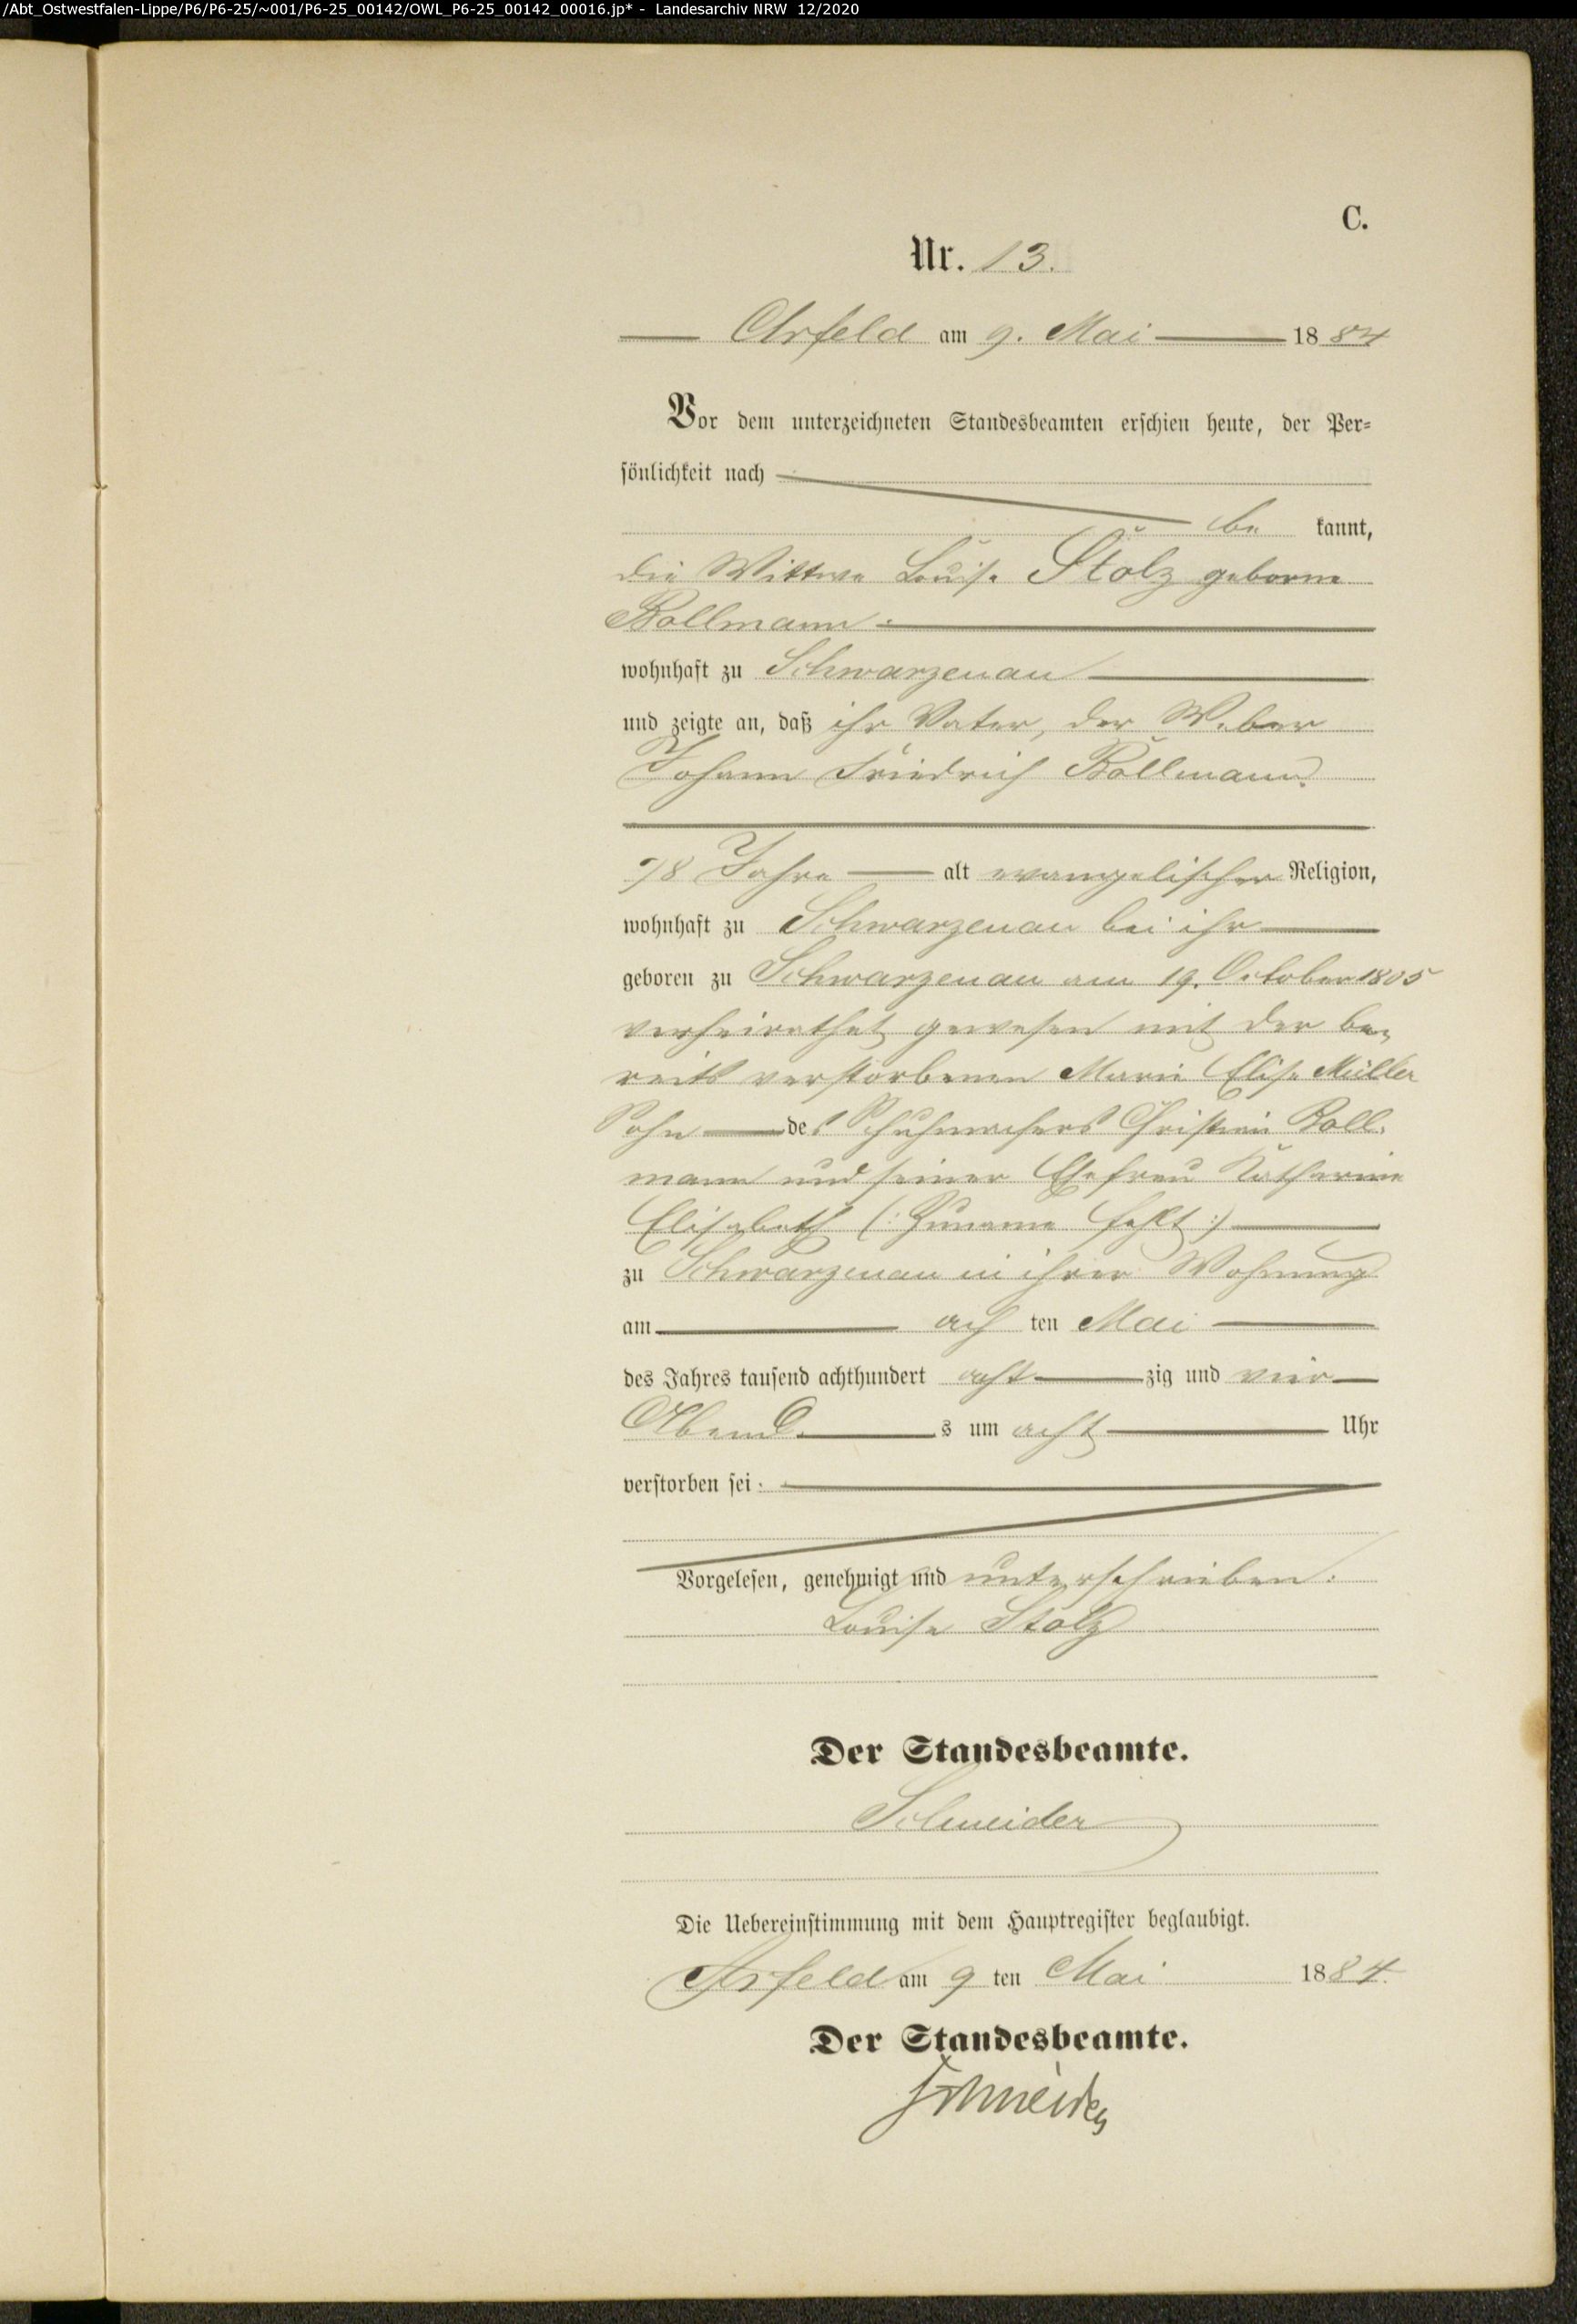 /Abt_Ostwestfalen-Lippe/P6/P6-25/~001/P6-25_00142/OWL_P6-25_00142_00016.jp* - Landesarchiv NRW 12/2020
C.
Nr. 13.
Arfeld am 9. Mai 1884
Vor dem unterzeichneten Standesbeamten erschien heute, der Per-
sönlichkeit nach
be kannt,
die Wittwe Louise Stolz geborne
Bollmann.
wohnhaft zu Schwarzenau
und zeigte an, daß ihr Vater, der Weber
Johann Friedrich Bollmann.
78 Jahre alt evangelischer Religion,
wohnhaft zu Schwarzenau bei ihr
geboren zu Schwarzenau am 19. October 1805
verheirathet gewesen mit der be-
reits verstorbenen Marie Elise Müller
Sohn des Schuhmachers Christian Boll-
mann und seiner Ehefrau Katharine
Elisabeth (: Zuname fehlt :)
zu Schwarzenau in ihrer Wohnung
am ach ten Mai
des Jahres tausend achthundert acht zig und vier
Abend s um acht Uhr
verstorben sei.
Vorgelesen, genehmigt und unterschrieben.
Louise Stolz
Der Standesbeamte.
Schneider
Die Uebereinstimmung mit dem Hauptregister beglaubigt.
Arfeld am 9 ten Mai 1884.
Der Standesbeamte.
Schneider